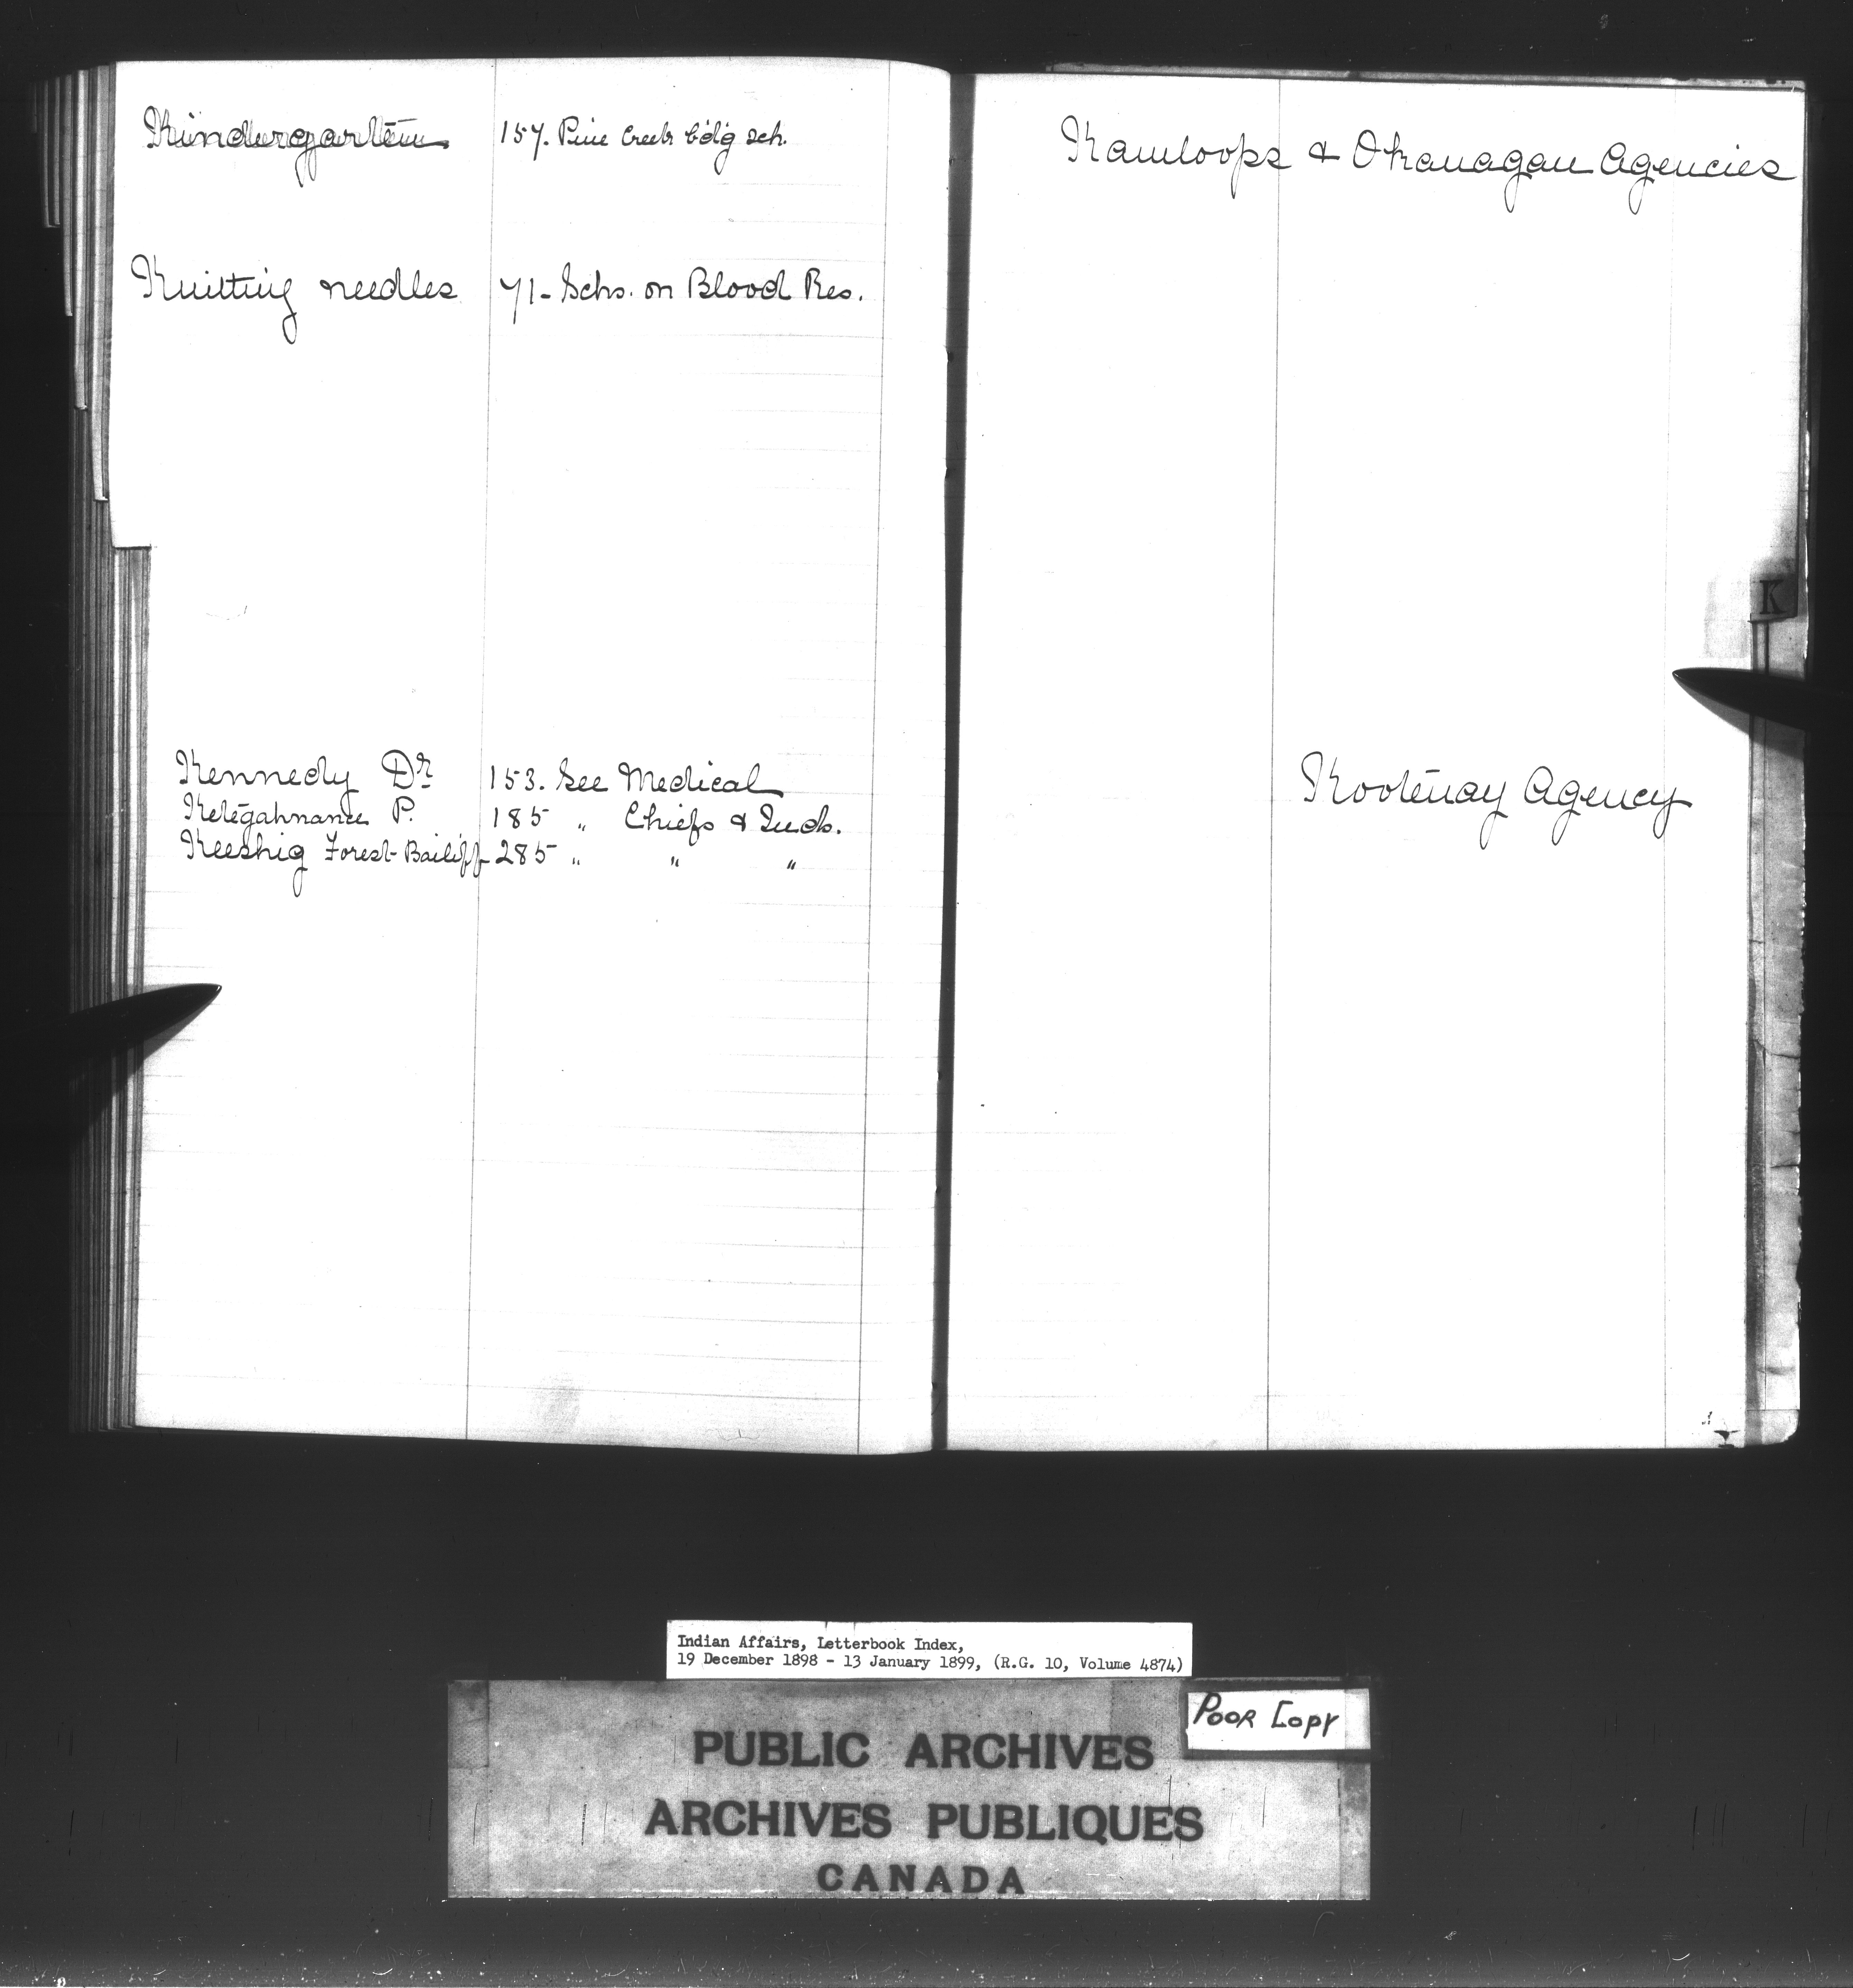 Kindergarten 157. Pine Creek b'd'g sch.
Knitting needles 71- Schs. on Blood Res.
Kennedy Dr 153. See Medical
Ketegahnance P. 185 " Chiefs & Inds.
Keeshig Forest-Bailiff 285 " " "
Kamloops & Okanagan Agencies
K
Kootenay Agency
Indian Affairs, Letterbook Index,
19 December 1898 - 13 January 1899, (R.G. 10, Volume 4874)
Poor Copy
PUBLIC ARCHIVES
ARCHIVES PUBLIQUES
CANADA